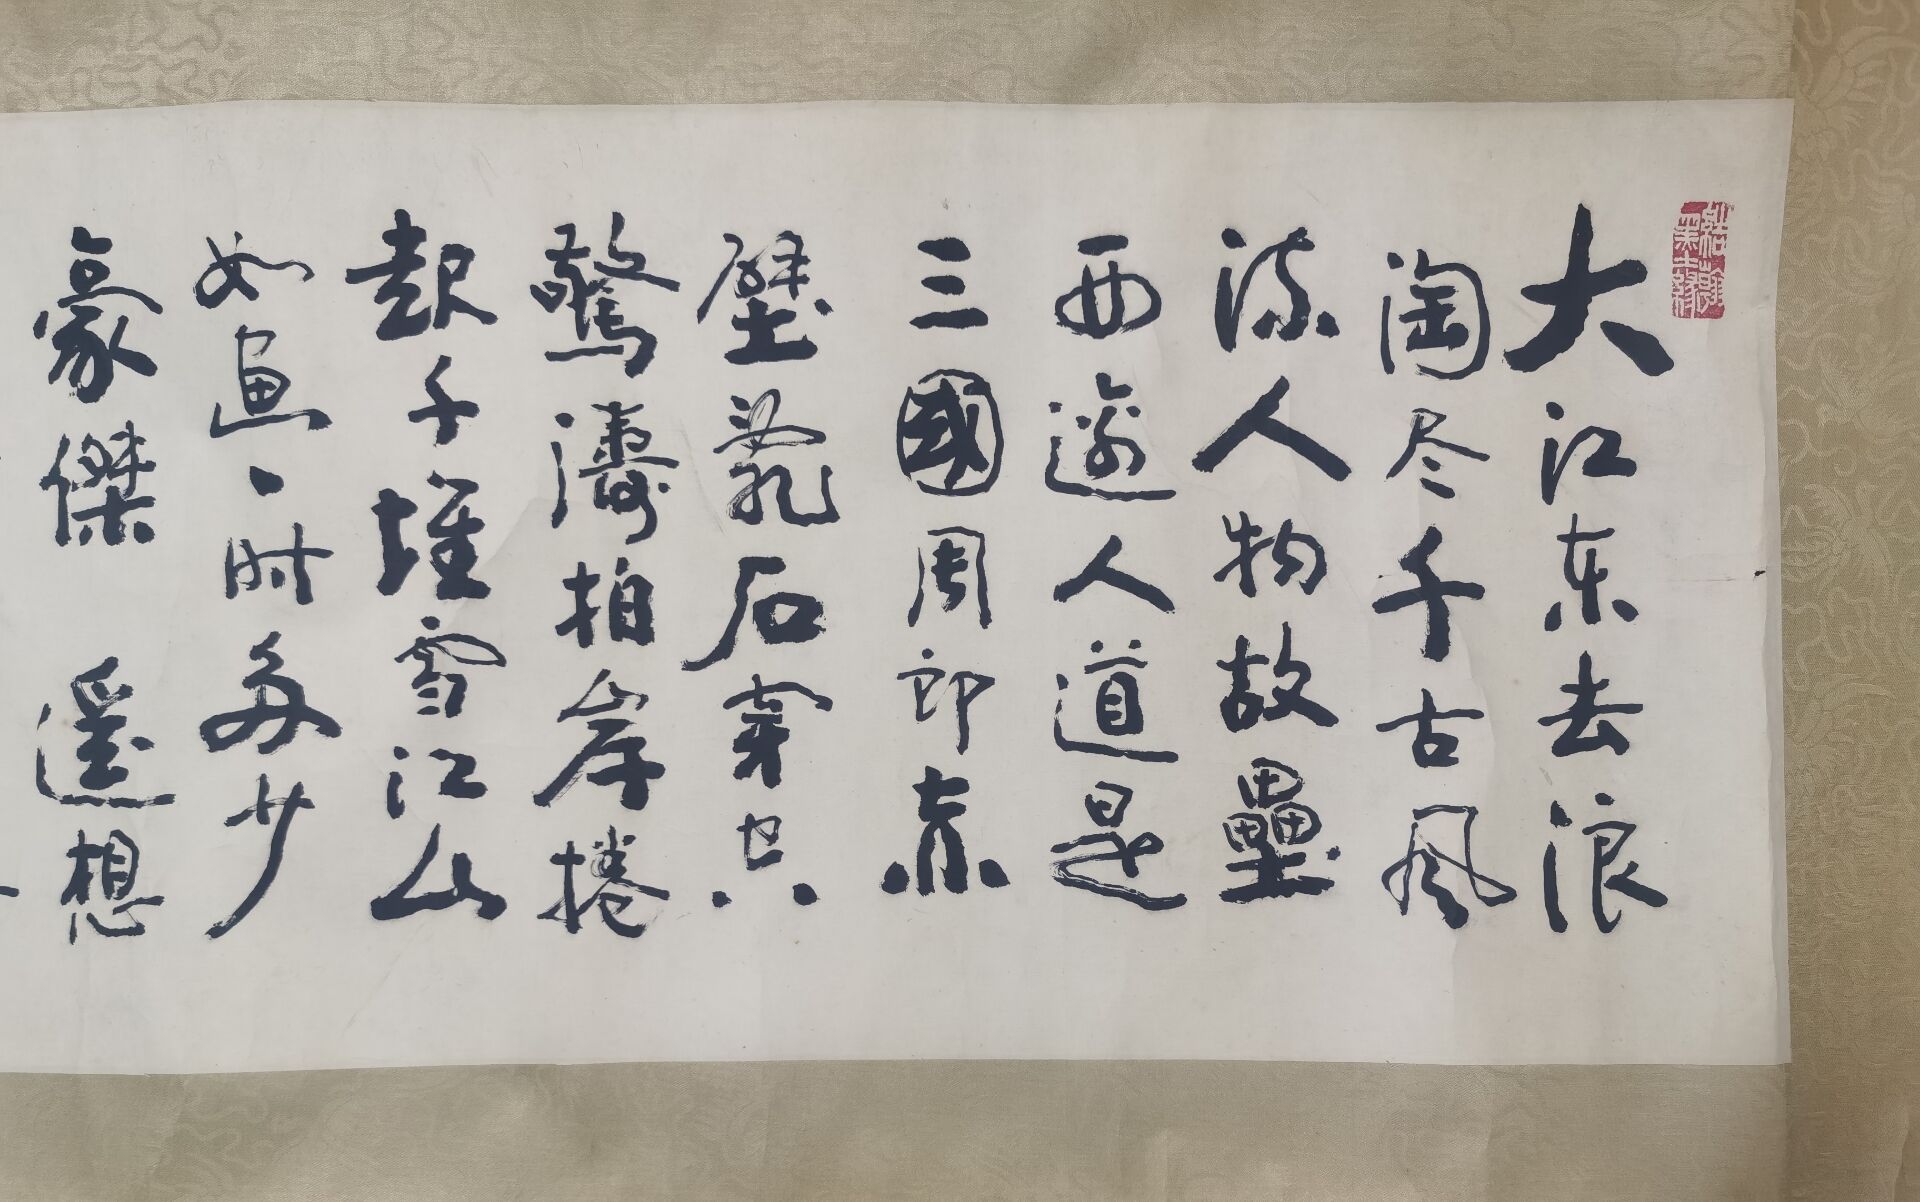 大江东去浪
淘尽千古风
流人物故壘
西邊人道是
三國周郎赤
壁亂石穿空
驚濤拍岸捲
起千堆雪江山
如畫一时多少
豪傑 遥想